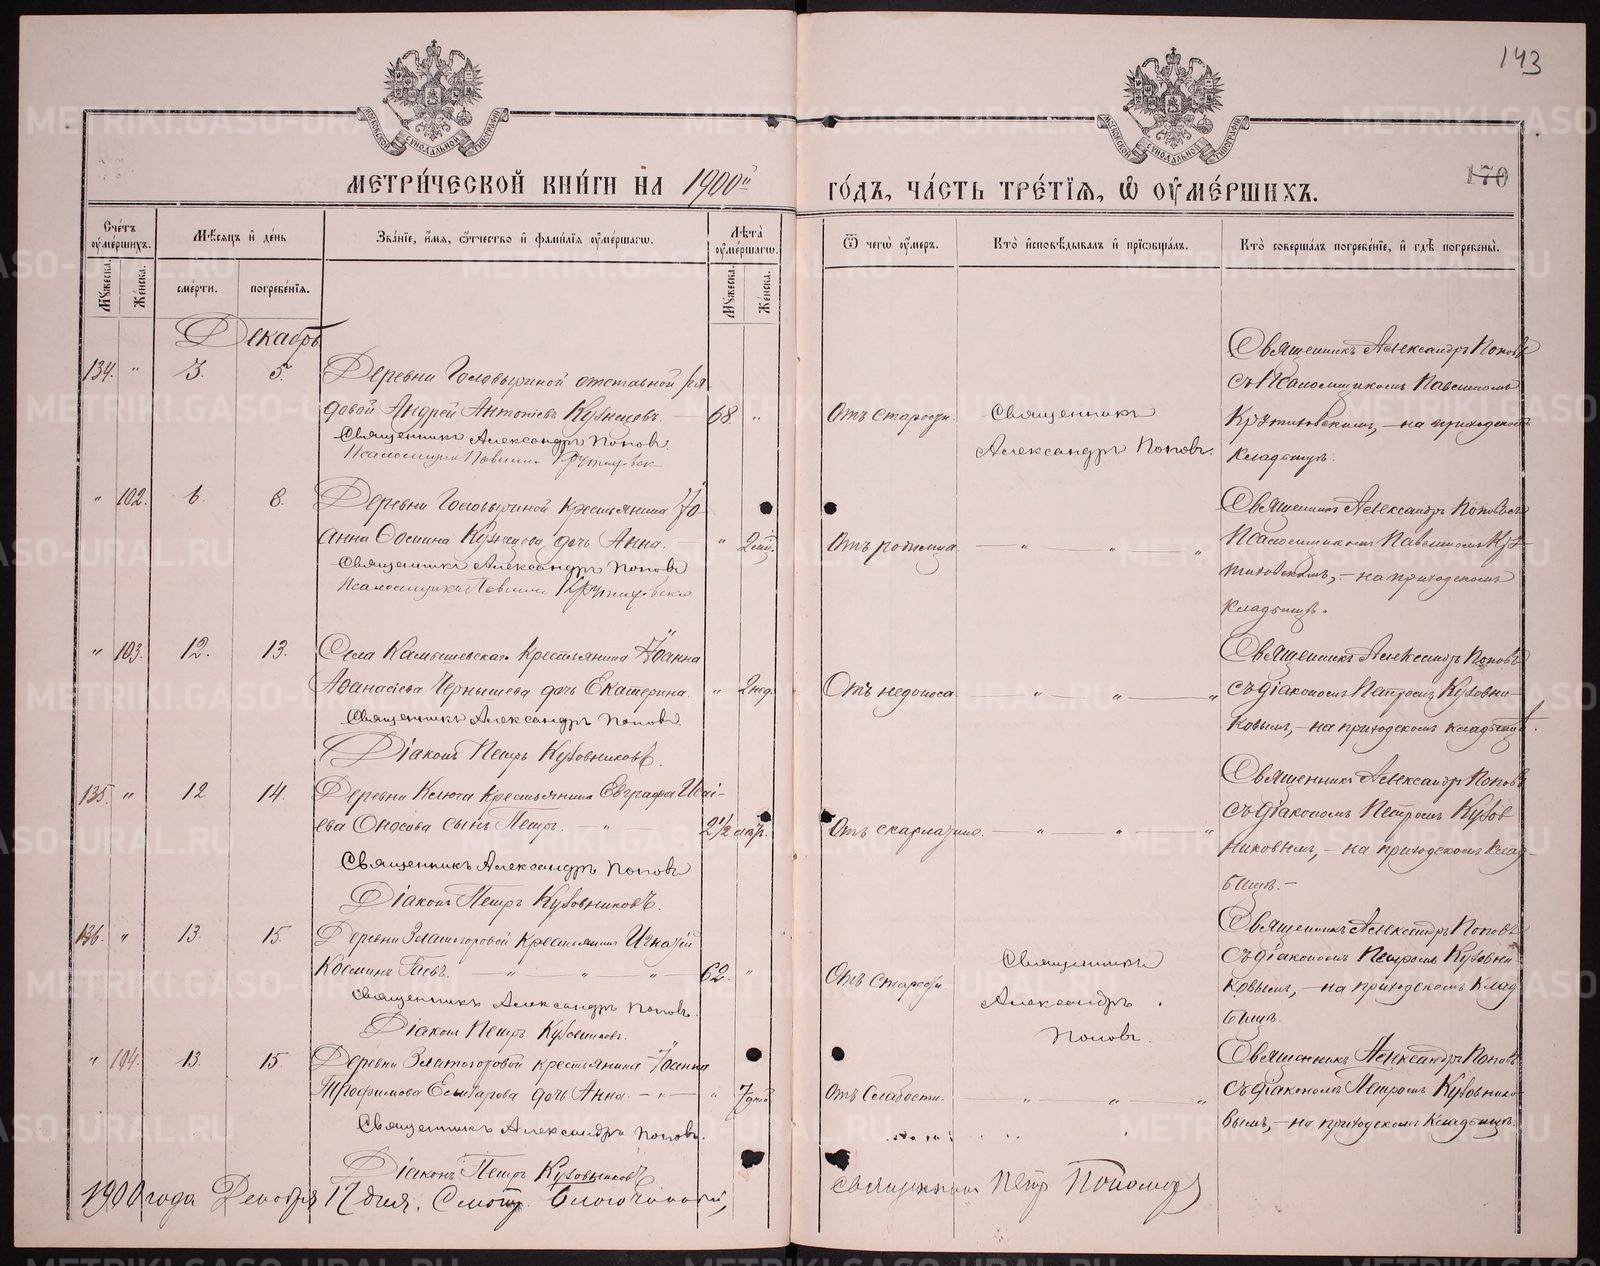 143
170
МОСКОВСКОЙ СѴНОДАЛЬНОЙ ТИПОГРАФІИ
МОСКОВСКОЙ СѴНОДАЛЬНОЙ ТИПОГРАФІИ
МЕТРИ́ЧЕСКОЙ КНИ́ГИ НА 1900й
ГО́ДЪ, ЧА́СТЬ ТРЕ́ТІЯ, Ѡ ОУМЕ́РШИХЪ.
Сче́тъ оуме́ршихъ.
Мѣсяцъ и де́нь
Зва́ніе, и́мя, о́тчество и фами́лія оуме́ршагω.
Лѣта̀ оуме́ршагω.
Ѿ чегὼ оу́меръ.
Кто̀ исповѣ́дывалъ и пріωбща́лъ.
Кто̀ соверша́лъ погребе́ніе, и гдѣ̀ погребены̀.
Мꙋжеска.
Же́нска.
сме́рти.
погребе́нія.
Мꙋжеска.
Же́нска.
Декабрь
134. " 3. 5. Деревни Головыриной отставной ря-
довой Андрей Антоніевъ Кузнецовъ. — 68. "
Священникъ Александръ Поповъ
Псаломщикъ
Отъ старости.
Священникъ
Александръ Поповъ.
Священникъ Александръ Поповъ
съ Псаломщикомъ
на приходскомъ
кладбищѣ.
" 102. 6. 8. Деревни Головыриной крестьянина Іо-
анна Кузнецова дочь Анна. — "
Священникъ Александръ Поповъ
Псаломщикъ
Отъ родимца — " — " — "
Священникъ Александръ Поповъ съ
Псаломщикомъ
на приходскомъ
кладбищѣ.
" 103. 12. 13. Села Камышевскаго крестьянина Іоанна
Аѳанасіева Чернышева дочь Екатерина. " 2 нед.
Священникъ Александръ Поповъ.
Діаконъ Петръ Кузовниковъ.
Отъ недоноса — " — " — "
Священникъ Александръ Поповъ
съ діакономъ Петромъ Кузовни-
ковымъ, — на приходскомъ кладбищѣ.
135. " 12 14. Деревни Ключа крестьянина Евграфа Исаі-
ева сынъ Петръ. — " — 2½
Священникъ Александръ Поповъ
Діаконъ Петръ Кузовниковъ.
Отъ скарлатины. — " — " — "
Священникъ Александръ Поповъ
съ діакономъ Петромъ Кузов
никовымъ, — на приходскомъ клад-
бищѣ. —
136. " 13. 15. Деревни Златогоровой крестьянинъ Игнатій
Косминъ — " — " — " — 62. "
Священникъ Александръ Поповъ.
Діаконъ Петръ Кузовниковъ.
Отъ старости.
Священникъ
Александръ
Поповъ.
Священникъ Александръ Поповъ
съ діакономъ Петромъ Кузовни-
ковымъ, — на приходскомъ клад
бищѣ.
" 104. 13. 15. Деревни Златогоровой крестьянина Іоанна
Трофимова дочь Анна. — " — " 7 дней
Священникъ Александръ Поповъ.
Діаконъ Петръ Кузовниковъ
Отъ слабости. — " — " — "
Священникъ Александръ Поповъ
съ діакономъ Петромъ Кузовнико-
вымъ, — на приходскомъ кладбищѣ.
1900 года Декабря 17 дня. Смотр. благочинный,
священникъ Петр Пономарев
METRIKI.GASO-URAL.RU